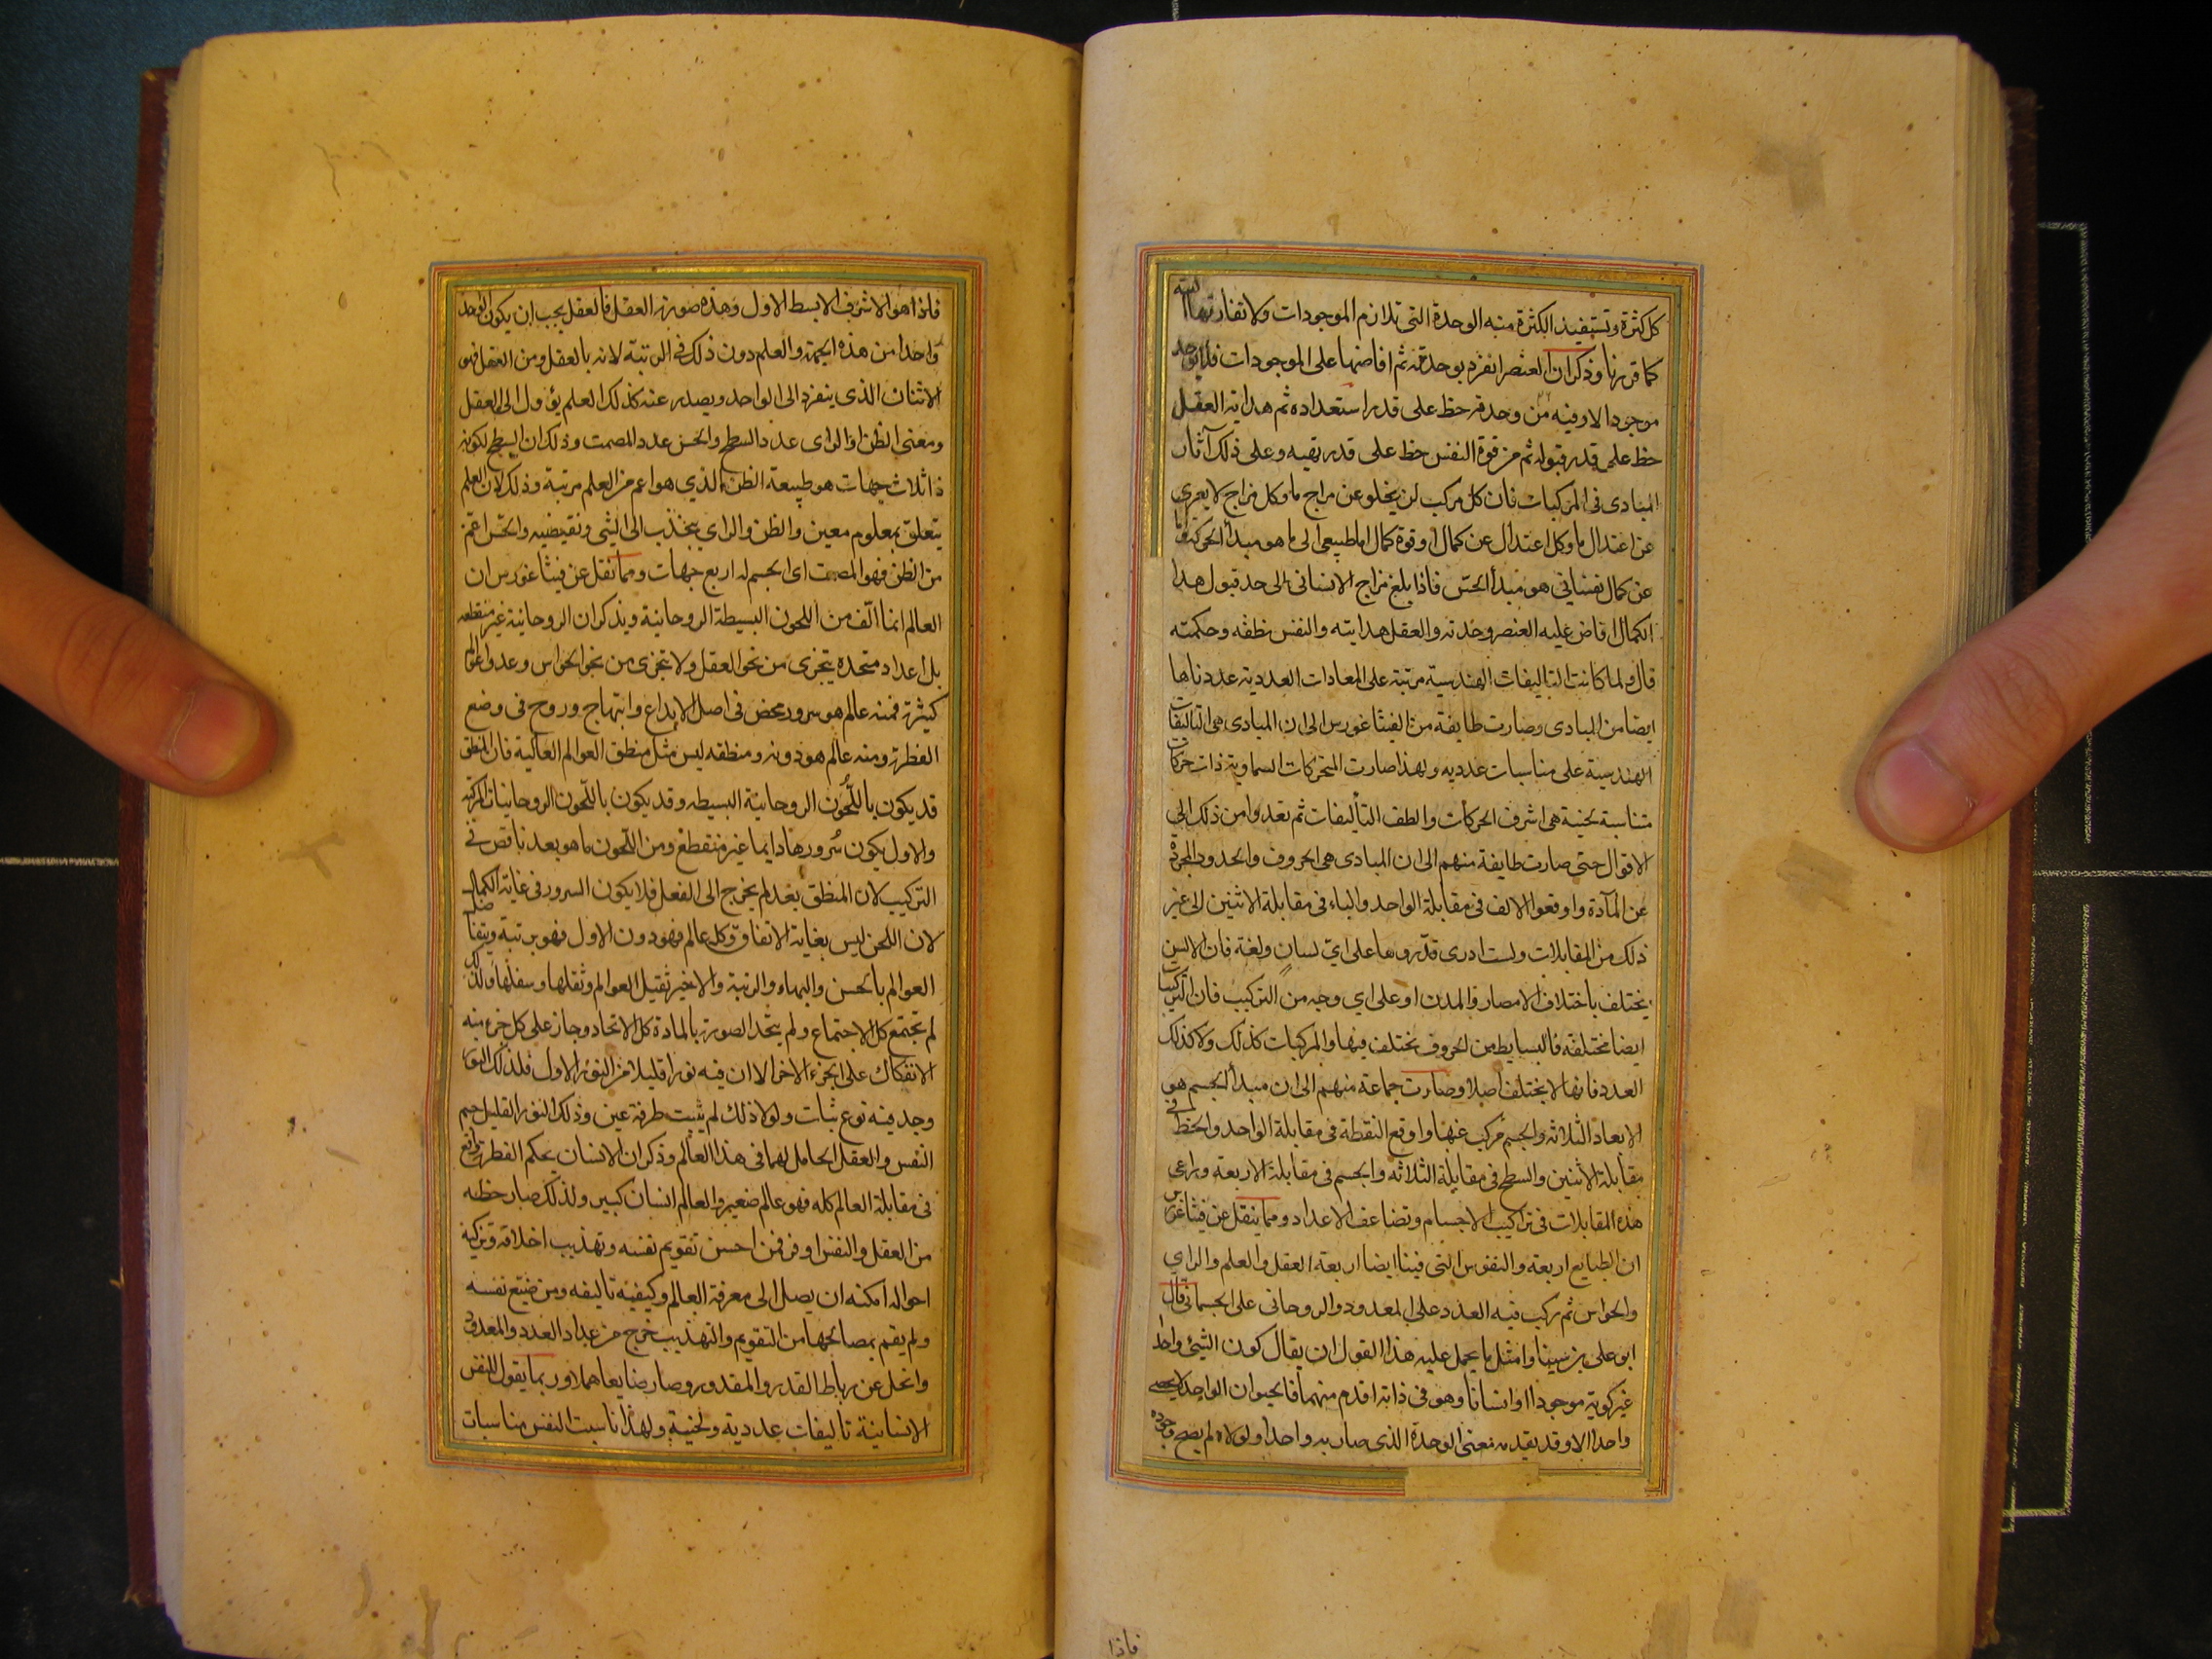 كل كثرة وتستفيد الكثرة منه الوحدة التي تلازم الموجودات ولا تفارقها البتة
كما قررنا وذكر ان العنصر انفرد بوحدته ثم افاضها على الموجودات فلا يوجد
موجود الا وفيه من وحدته حظ على قدر استعداده ثم هداية العقل
حظ على قدر قبوله ثم من قوة النفس حظ على قدر تهيه وعلى ذلك آثار
المبادى فى المركبات فان كل مركب لن يخلو عن مزاج ما وكل مزاج لا يعرى
عن اعتدال ما وكل اعتدال عن كمال او قوة كمال اما طبيعى الى ما هو مبدأ الحركة واما
عن كمال نفسانى هو مبدأ الحس فاذا بلغ مزاج الانسانى الى حد قبول هذا
الكمال افاض عليه العنصر وحدته والعقل هدايته والنفس نطقه وحكمته
قال ولما كانت التاليفات الهندسية مرتبة على المعادات العددية عددناها
ايضا من المبادى وصارت طايفة من الفيثاغورس الى ان المبادى هى التاليفات
الهندسية على مناسبات عدديه ولهذا صارت المتحركات السماوية ذات حركات
متناسبة لحنية هى اشرف الحركات والطف التأليفات ثم تعدوا من ذلك الى
الاقوال حتى صارت طايفة منهم الى ان المبادى هى الحروف والحدود المجردة
عن المآدة واوقعوا الالف فى مقابلة الواحد والباء فى مقابلة الاثنين الى غير
ذلك من المقابلات ولست ادرى قدروها على اي لسان ولغة فان الالسن
يختلف باختلاف الامصار والمدن او على اي وجه من التركيب فان التركيبات
ايضا مختلفة فالبسايط من الحروف تختلف فيها والمركبات كذلك ولا كذلك
العدد فانها لا يختلف اصلا وصارت جماعة منهم الى ان مبدأ الجسم هو
الابعاد الثلاثه والجسم مركب عنها واوقع النقطة فى مقابلة الواحد والخط فى
مقابلة الاثنين والسطح فى مقابلة الثلاثه والجسم فى مقابلة الاربعة وراعى
هذه المقابلات فى تراكيب الاجسام وتضاعف الاعداد ومما ينقل عن فيثاغورس
ان الطبايع اربعة والنفوس التى فينا ايضا اربعة العقل والعلم والراي
والحواس ثم ركب فيه العدد على المعدود والروحانى على الجسمانى قال
ابو على بن سينا وامثل ما يحمل عليه هذا القول ان يقال كون الشئ واحدا
غير كونه موجودا او انسانا وهو فى ذاته اقدم منهما فالحيوان الواحد لا يحصل
واحدا الا وقد يقدمه معنى الوحدة الذى صار به واحدا ولولاه لم يصح وجوده
فاذا
فلذا هو الاشرف الابسط الاول وهذه صورة العقل فالعقل يجب ان يكون الواحد
واحدا من هذه الجهة والعلم دون ذلك فى الرتبة لانه بالعقل ومن العقل فهو
الاثنان الذى ينفرد الى الواحد ويصدر عنه كذلك العلم يؤول الى العقل
ومعنى الظن والراى عدد السطح والحس عدد المصمت وذلك ان السطح لكونه
ذا ثلاث جهات هو طبيعة الظن الذي هو اعم من العلم مرتبة وذلك لان العلم
يتعلق بمعلوم معين والظن والراي ينجذب الى الشى ونقيضيه والحس اعم من
من الظن فهو المصمت اى الجسم له اربع جهات ومما نقل عن فيثاغورس ان
العالم انما الف من اللحون البسيطة الروحانية ويذكر ان الروحانية غير منقطعه
بل اعداد متحده يتجزى من نحو العقل ولا تتجزى من نحو الحواس وعد عوالم
كثيرة فمنه عالم هو سرور محض فى اصل الابداع وابتهاج وروح فى وضع
الفطرة ومنه عالم هو دونه ومنطقه ليس مثل منطق العوالم العالية فان المنطق
قد يكون باللحون الروحانية البسيطه وقد يكون باللحون الروحانيات المركبة
والاول يكون سرورها دايما غير منقطع ومن اللحون ما هو بعد ناقص فى
التركيب لان المنطق بعد لم يخرج الى الفعل فلا يكون السرور فى غاية الكمال
لان اللحن ليس بغاية الاتفاق وكل عالم فهو دون الاول فهو برتبة ويتفاضل
العوالم بالحسن والبهاء والرتبة والاخير ثقيل العوالم وثقلها وسفلها ولذلك
لم تجتمع كل الاجتماع ولم يتحد الصورة بالمادة كل الاتحاد وجاز على كل جزء منه
الانفكاك على الجزء الاخر الا ان فيه نورا قليلا من النور الاول فلذلك النور
وجد فيه نوع ثبات ولولا ذلك لم يثبت طرفة عين وذلك النور القليل جسم
النفس والعقل الحامل لهما فى هذا العالم وذكر ان الانسان بحكم الفطرة واقع
فى مقابلة العالم كله فهو عالم صغير والعالم انسان كبير ولذلك صار حظه
من العقل والنفس اوفر فمن احسن تقويم نفسه وتهذيب اخلاقه وتزكية
احواله امكنه ان يصل الى معرفة العالم وكيفية تاليفه ومن ضيع نفسه
ولم يقم بمصالحها من التقويم والتهذيب خرج من عداد العدد والمعدود
وانحل عن رباط القدر والمقدور وصار ضايعا هملا وربما يقول النفس
الانسانية تاليفات عددية ولحنية ولهذا ناسبت النفس مناسبات